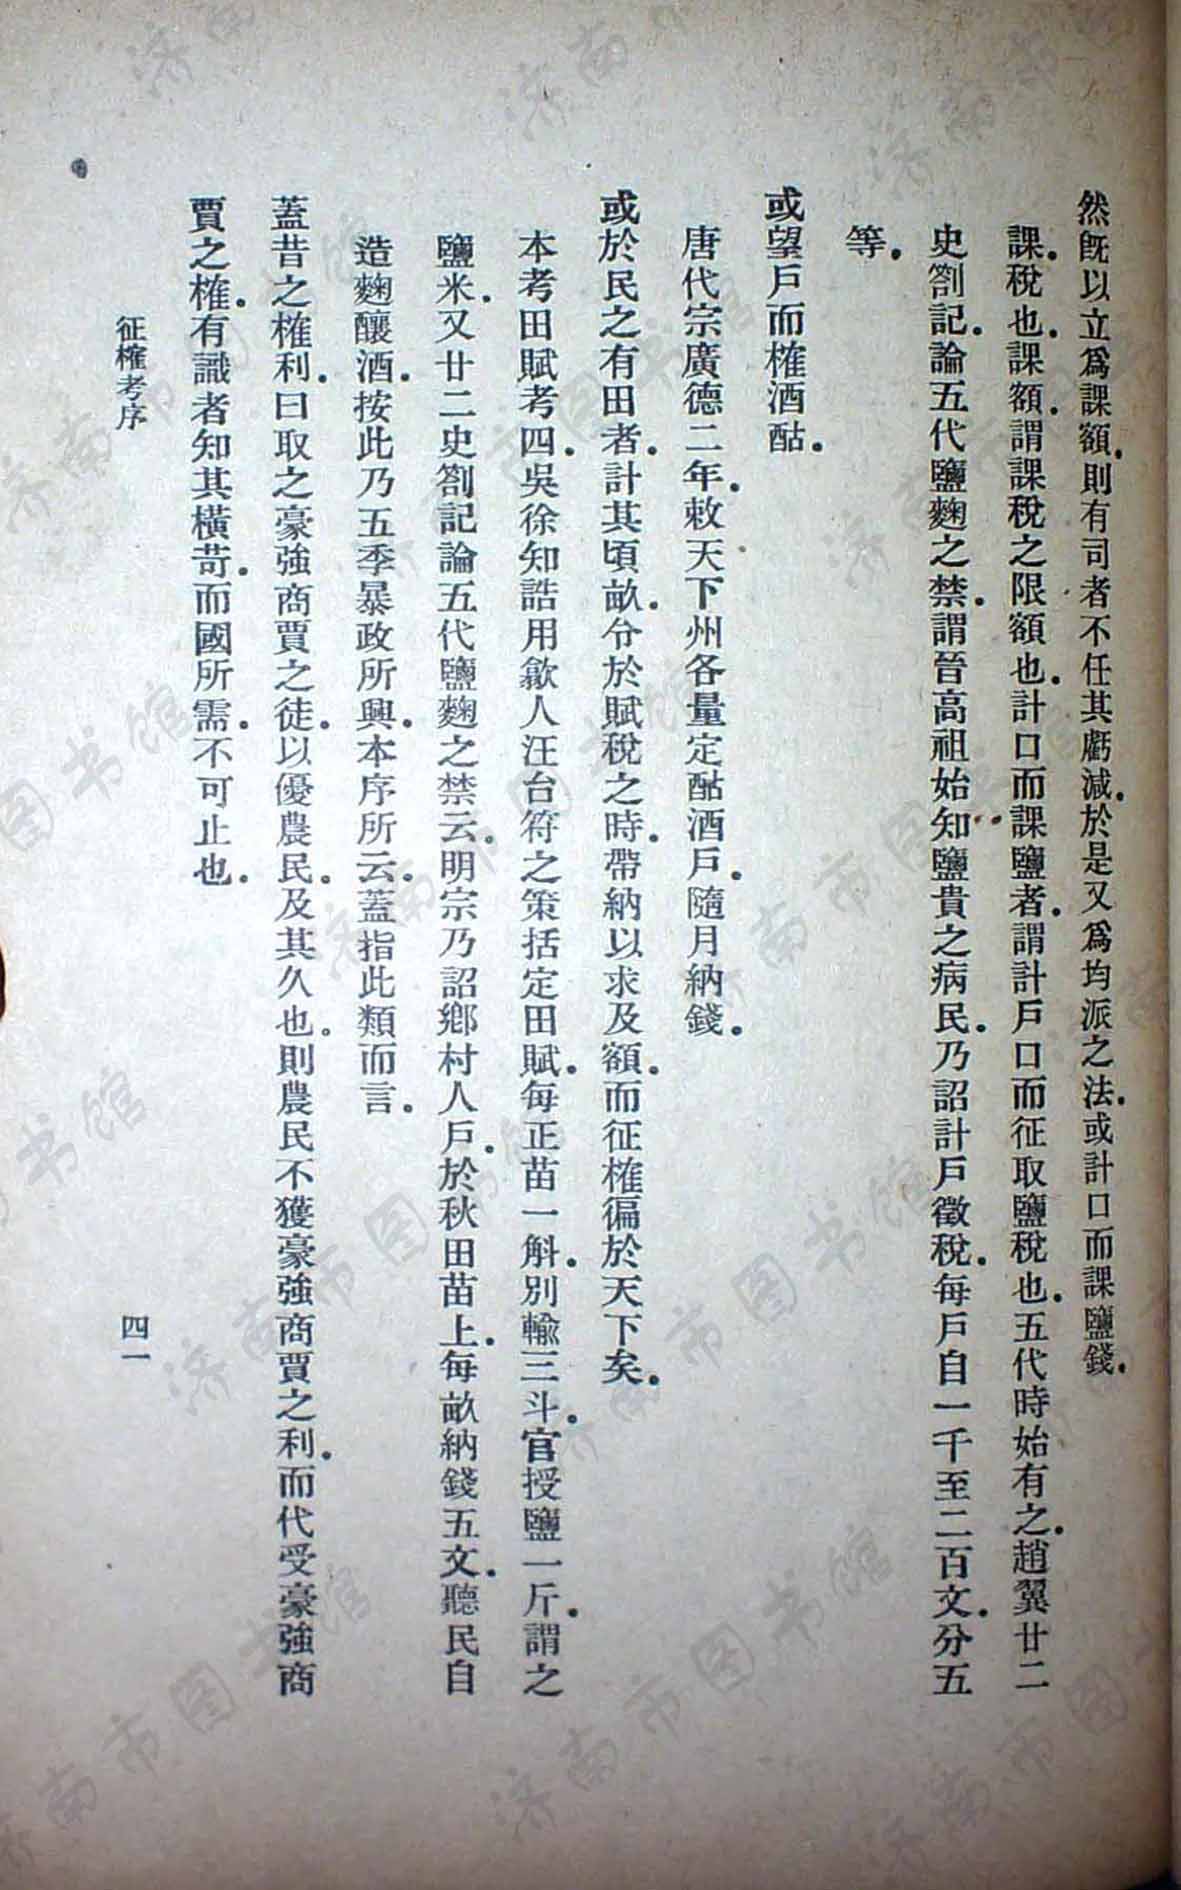 然旣以立爲課額.則有司者不任其虧減.於是又爲均派之法.或計口而課鹽錢.
課.稅也.課額.謂課稅之限額也.計口而課鹽者.謂計戶口而征取鹽稅也.五代時始有之.趙翼廿二
史劄記.論五代鹽麴之禁.謂晉高祖始知鹽貴之病民.乃詔計戶徵稅.每戶自一千至二百文.分五
等.
或望戶而榷酒酤.
唐代宗廣德二年.敕天下州各量定酤酒戶.隨月納錢.
或於民之有田者.計其頃畝.分於賦稅之時.帶納以求及額.而征榷徧於天下矣.
本考田賦考四.吳徐知誥用歙人汪台符之策括定田賦.每正苗一斛.別輸三斗.官授鹽一斤.謂之
鹽米.又廿二史劄記論五代鹽麴之禁云.明宗乃詔鄉村人戶.於秋田苗上.每畝納錢五文.聽民自
造麴釀酒.按此乃五季暴政所興.本序所云.蓋指此類而言.
蓋昔之榷利.曰取之豪強商賈之徒.以優農民.及其久也.則農民不獲豪強商賈之利.而代受豪強商
賈之榷.有識者知其橫苛.而國所需.不可止也.
征榷考序
四一
济南市图书馆